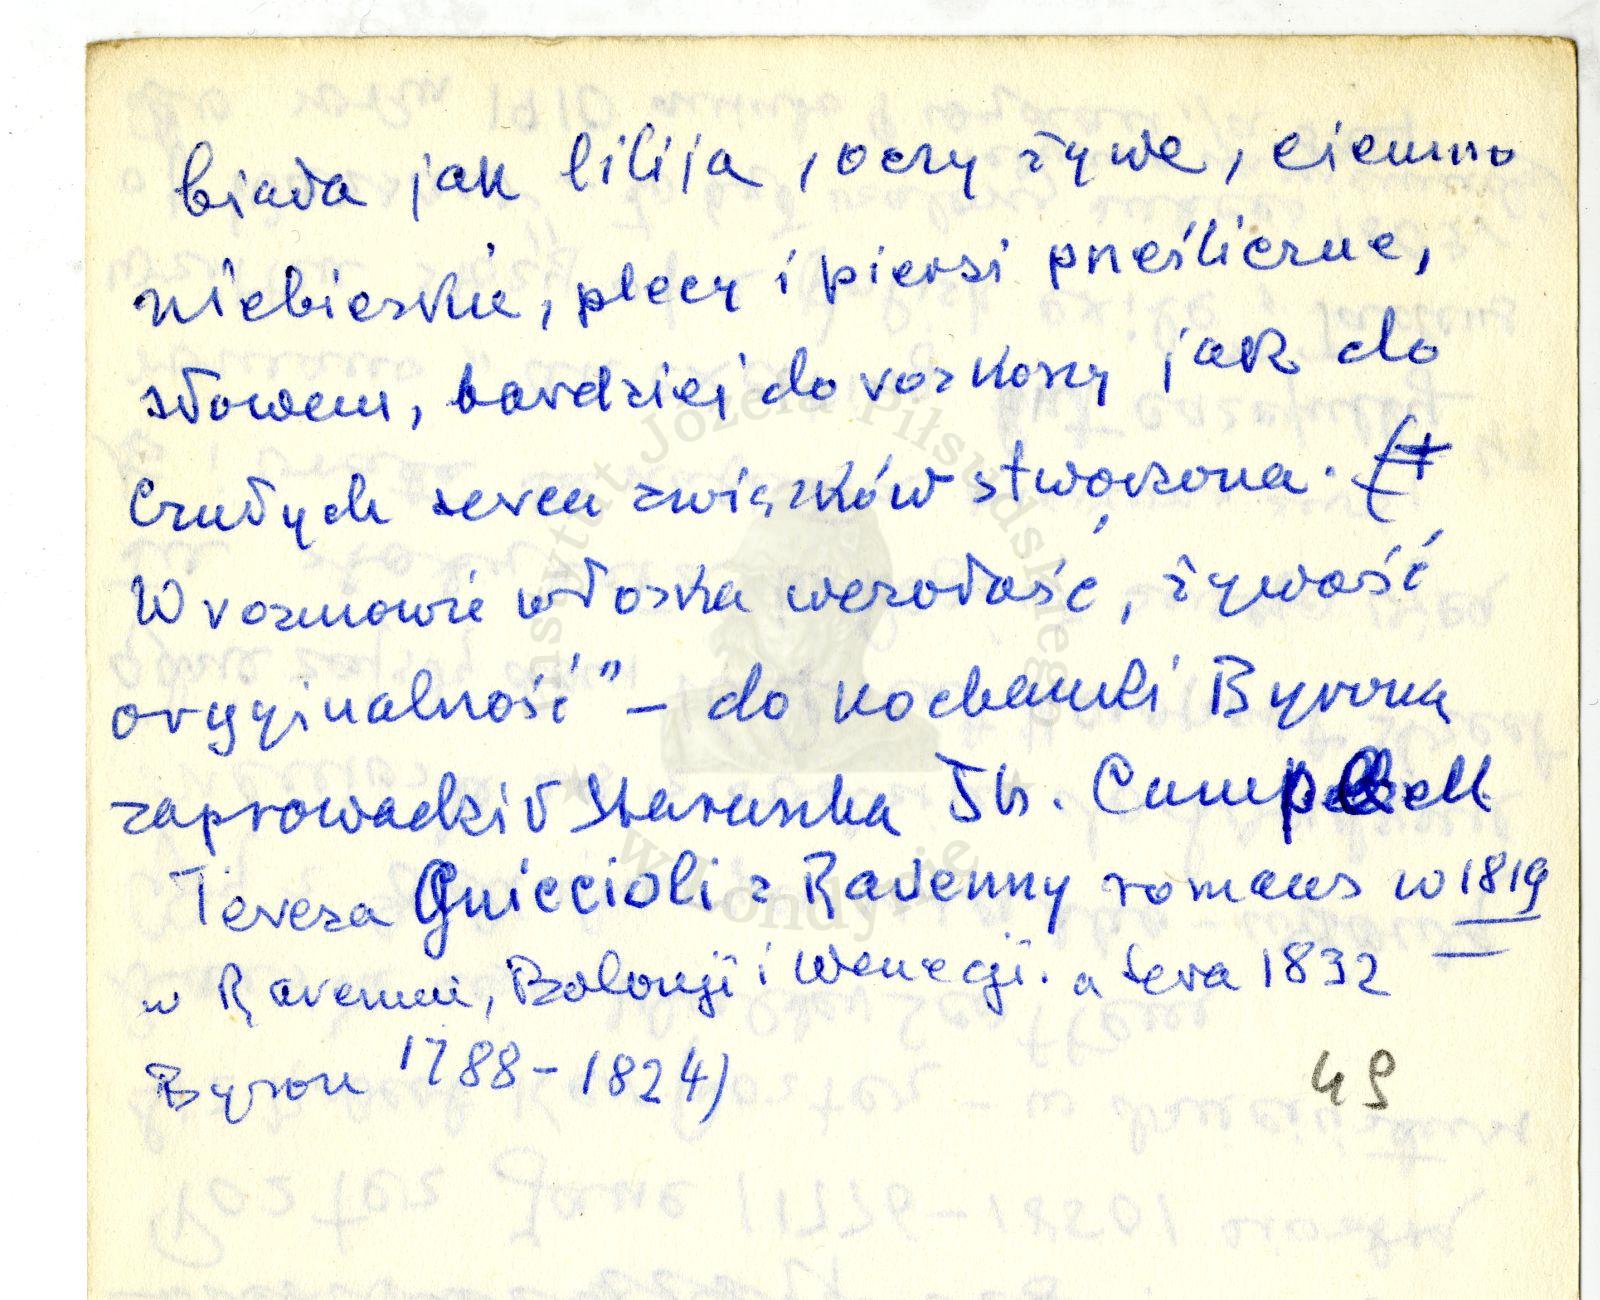 biała jak lilija, oczy żywe, ciemno
niebieskie, plecy i piersi prześliczne,
słowem, bardziej do roskoszy jak do
czułych serca związków stworzona. (+
W rozmowie włoska wesołość, żywość
orygyinalność" – do kochanki Byrona
zaprowadził staruszka Th. Campbell
Teresa Guiccioli z Ravenny romans w 1819
w Ravennie, Bolonji i Wenecji. a teraz 1832
Byron 1788–1824)
49
Instytut Józefa Piłsudskiego
w Londynie